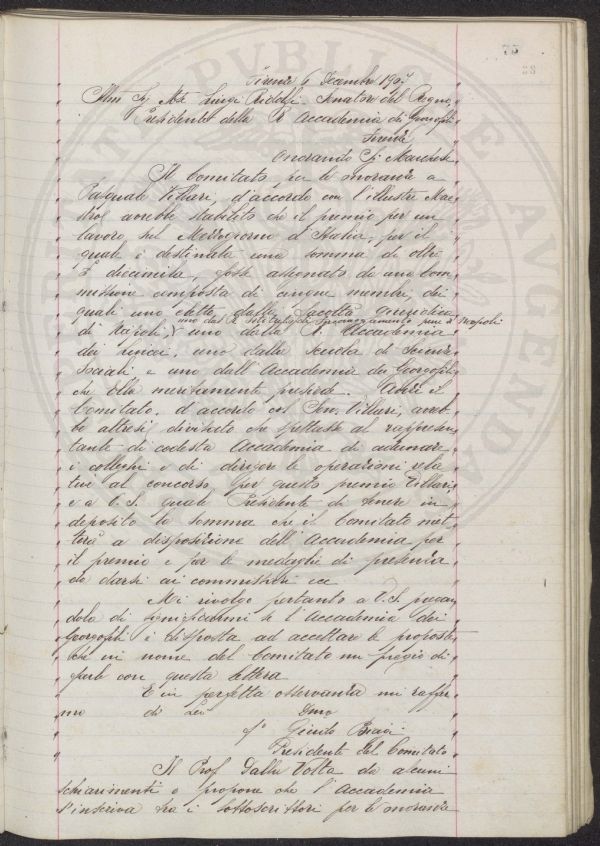 75
Firenze 6 Decembre 190
Illm Sg Mse Luigi Ridolfi Senatore del Regno
Presidente della R Accademia dei Georgofili
Firenze
Onorando Sg Marchese
Il Comitato per le onoranze a
Pasquale Villari, d'accordo con l'illustre Mae
stro avrebbe stabilito che il premio per un
lavoro sul Mezzogiorno d'Italia, per il
quale è destinata una somma di oltre
3 diecimila, fosse assegnato da una Com
missione composta di cinque membri, dei
quali uno eletto dalla Facoltà giuridica
uno dal R Istituto d'Incoraggiamento pure di Napoli
di Napoli, uno dalla R. Accademia
dei Lincei, uno dalla Scuola di Scienze
Sociali e uno dall'Accademia dei Georgofili
che Ella meritamente presiede. Anzi il
Comitato, d'accordo col Sen. Villari, avreb
be altresì divisato che spettasse al rappresen
tante di codesta Accademia di adunare
i colleghi e di dirigere le operazioni rela
tive al concorso per questo premio Villari
e a V. S. quale Presidente di tenere in
deposito la somma che il Comitato met
terà a disposizione dell'Accademia per
il premio e per le medaglie di presenza
da darsi ai commissari ecc
Mi rivolgo pertanto a V. S. pregan
dola di significarmi se l'Accademia dei
Georgofili è disposta ad accettare le proposte
che in nome del Comitato mi pregio di
farle con questa lettera
E in perfetta osservanza mi raffer
mo di Lei Dmo
fo Guido Biagi
Presidente del Comitato
Il Prof Dalla Volta da alcuni
schiarimenti e propone che l'Accademia
s'inscriva tra i sottoscrittori per le onoranze